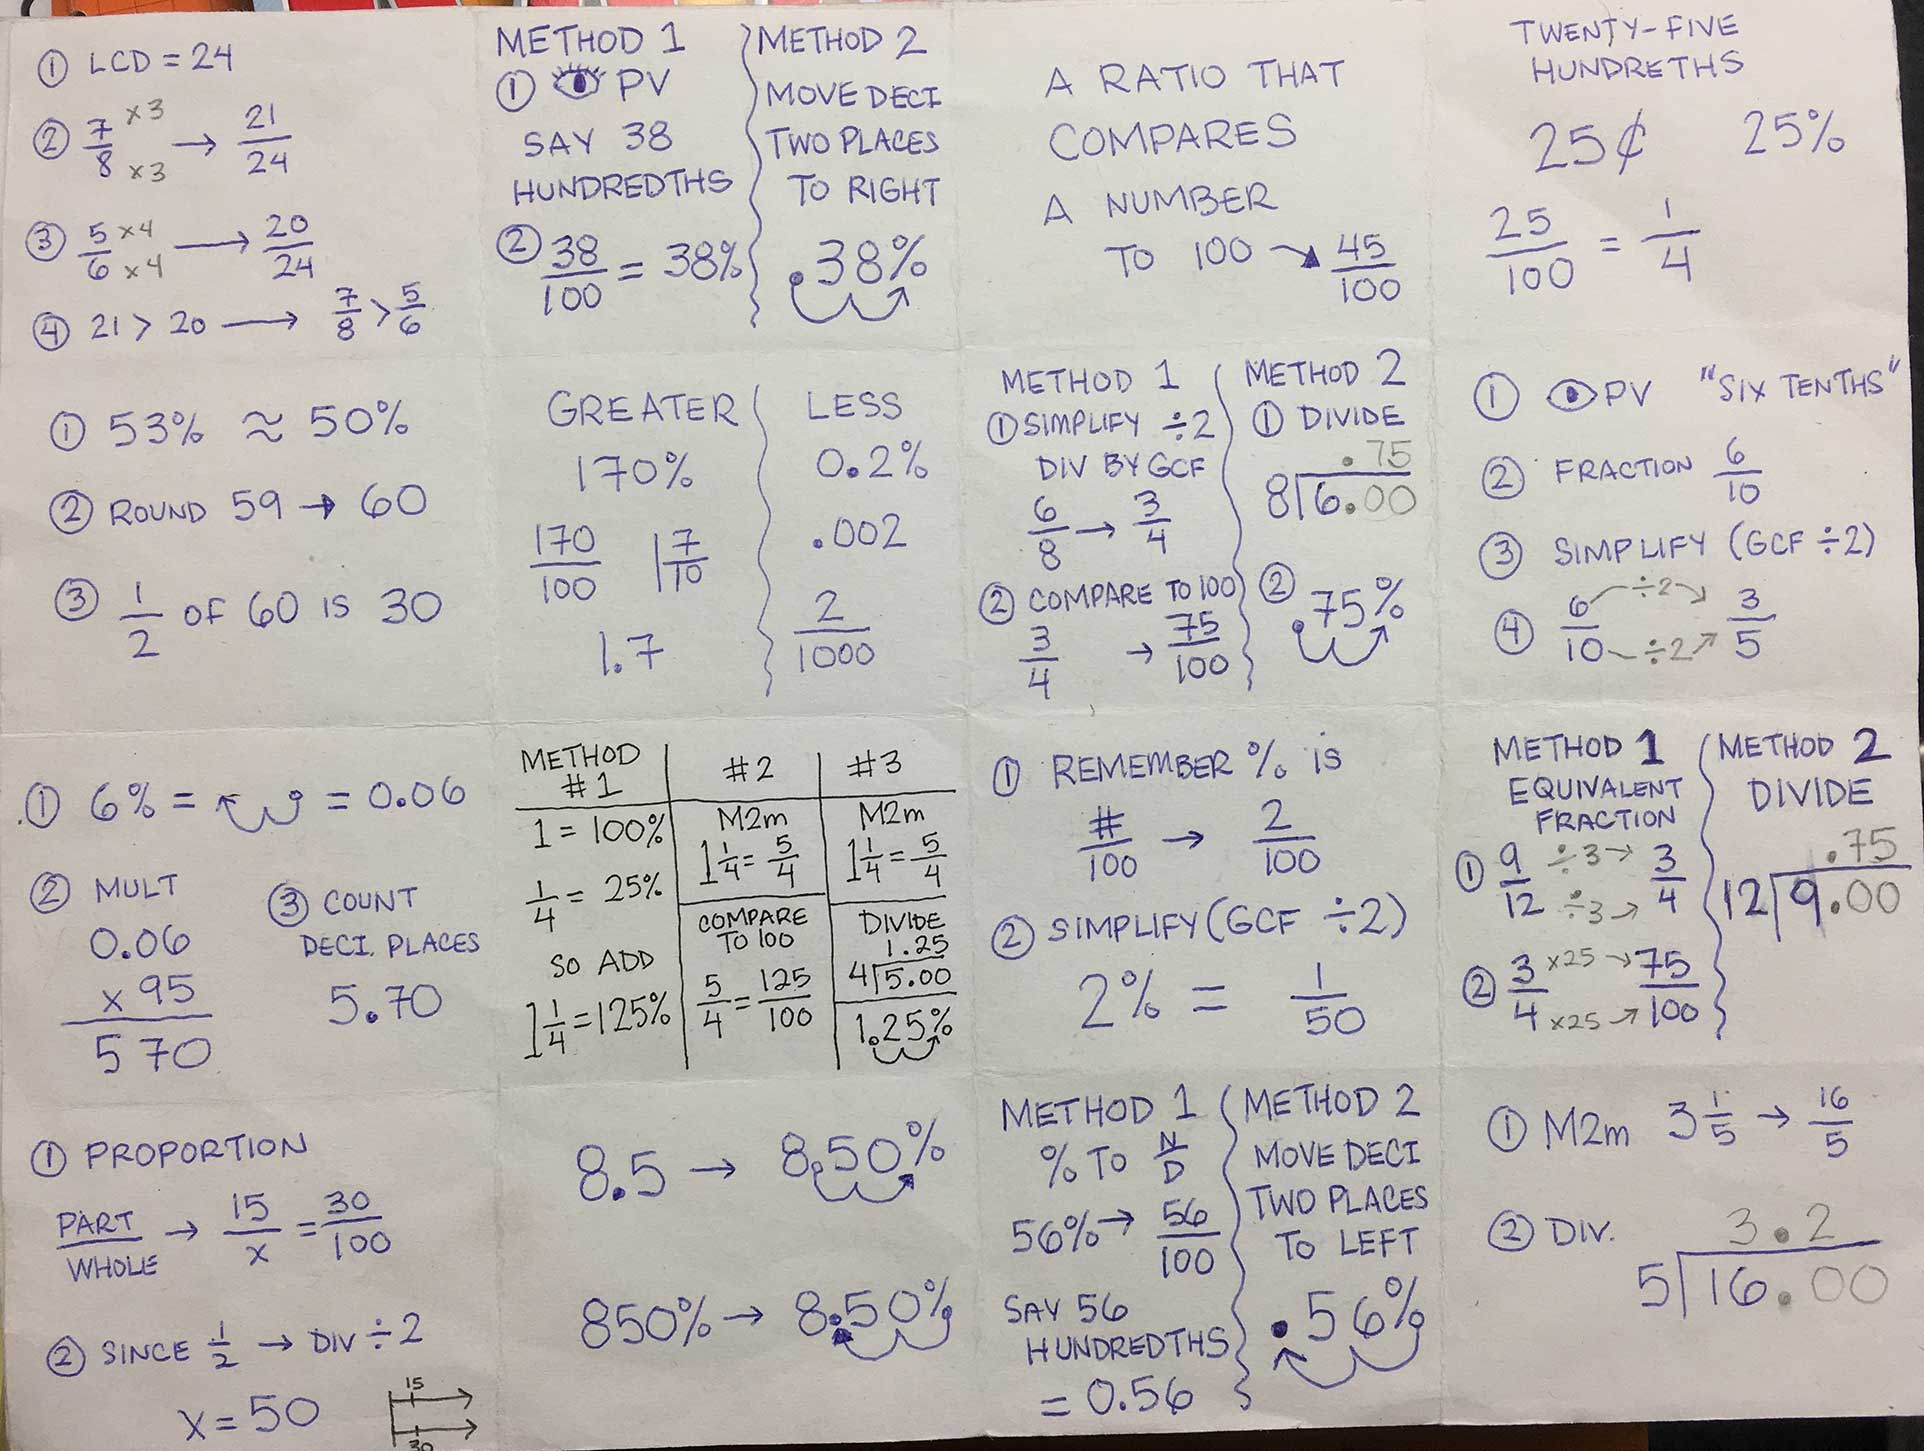 ① LCD = 24
② 7/8 ×3 ×3 → 21/24
③ 5/6 ×4 ×4 → 20/24
④ 21 > 20 → 7/8 > 5/6
METHOD 1
① PV
SAY 38
HUNDREDTHS
② 38/100 = 38%
METHOD 2
MOVE DECI
TWO PLACES
TO RIGHT
.38%
A RATIO THAT
COMPARES
A NUMBER
TO 100 → 45/100
TWENTY-FIVE
HUNDRETHS
25¢ 25%
25/100 = 1/4
① 53% ≈ 50%
② ROUND 59 → 60
③ 1/2 OF 60 IS 30
GREATER
170%
170/100 1 7/10
1.7
LESS
0.2%
.002
2/1000
METHOD 1
① SIMPLIFY ÷2
DIV BY GCF
6/8 → 3/4
② COMPARE TO 100
3/4 → 75/100
METHOD 2
① DIVIDE
.75
8 6.00
② .75%
① PV "SIX TENTHS"
② FRACTION 6/10
③ SIMPLIFY (GCF ÷2)
④ 6/10 ÷2 ÷2 3/5
① 6% = = 0.06
② MULT
0.06
× 95
570
③ COUNT
DECI. PLACES
5.70
METHOD
#1
1 = 100%
1/4 = 25%
SO ADD
1 1/4 = 125%
#2
M2m
1 1/4 = 5/4
COMPARE
TO 100
5/4 = 125/100
#3
M2m
1 1/4 = 5/4
DIVIDE
1.25
4 5.00
1.25%
① REMEMBER % IS
#/100 → 2/100
② SIMPLIFY (GCF ÷2)
2% = 1/50
METHOD 1
EQUIVALENT
FRACTION
① 9/12 ÷3 → ÷3 → 3/4
② 3/4 ×25 → ×25 → 75/100
METHOD 2
DIVIDE
.75
12 9.00
① PROPORTION
PART/WHOLE → 15/x = 30/100
② SINCE 1/2 → DIV ÷2
x = 50
15
30
8.5 → 8.50%
850% → 8.50%
METHOD 1
% TO N/D
56% → 56/100
SAY 56
HUNDREDTHS
= 0.56
METHOD 2
MOVE DECI
TWO PLACES
TO LEFT
.56%
① M2m 3 1/5 → 16/5
② DIV.
3.2
5 16.00